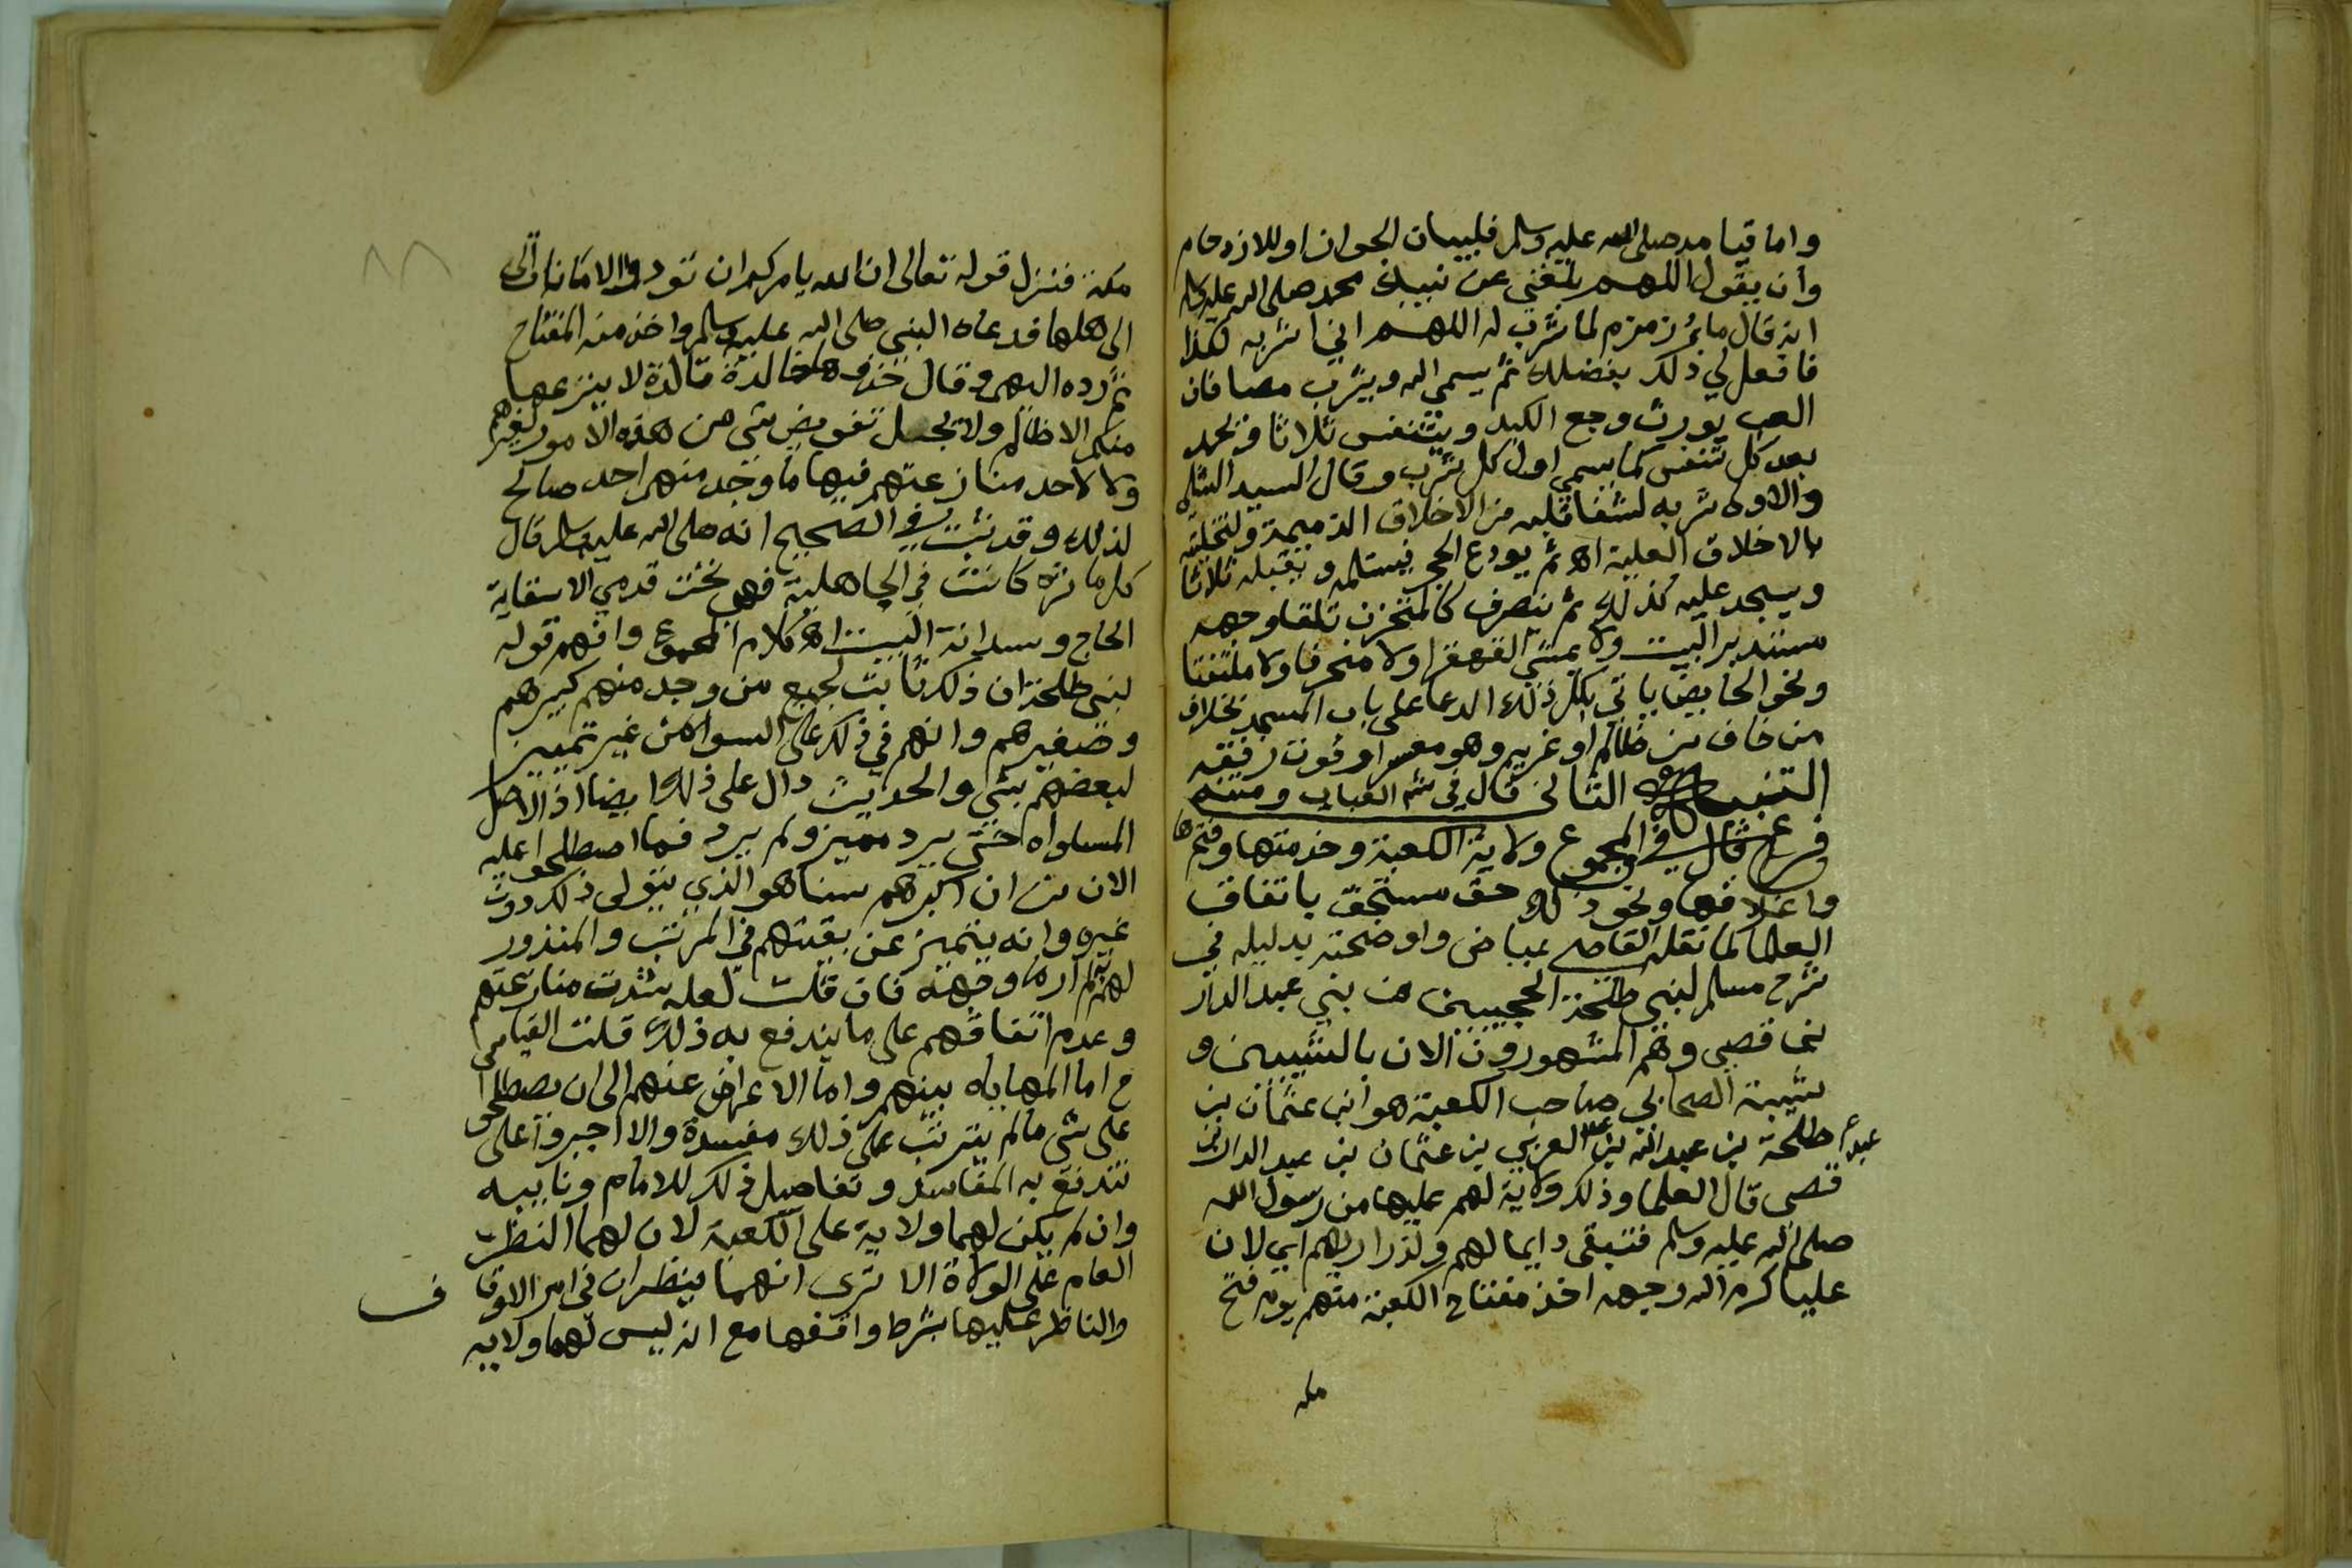 واما قيامه صلى الله عليه وسلم فلبيان الجواز او للازدحام
وان يقول اللهم بلغني عن نبيك محمد صلى الله عليه وسلم
انه قال ماء زمزم لما شرب له اللهم اني اشربه لكذا
فافعل لي ذلك بفضلك ثم يسمي الله ويشرب مصا فان
العب يورث وجع الكبد ويتنفس ثلاثا ويحمد
بعد كل تنفس كما يسمي اول كل شرب وقال السيد الشلي
والاولى شربه لشفا قلبه من الاخلاق الذميمة ولتحليته
بالاخلاق العلية اه ثم يودع الحجر فيستلمه ويقبله ثلاثا
ويسجد عليه كذلك ثم ينصرف كالمتحزن تلقا وجهه
مستدبر البيت ولا يمشي القهقرا ولا منحرفا ولا ملتفتا
ونحو الحايض ياتي بكل ذلك الدعا على باب المسجد بخلاف
من خاف من ظالم او غريم وهو معسر او فوت رفقه
التنبيه الثاني قال في شرح العباب ومتنه
فرع قال في المجموع ولاية الكعبة وخدمتها وفتحها
واغلاقها ونحو ذلك حق مستحق باتفاق
العلما كما نقله القاضي عياض واوضحته بدليله في
شرح مسلم لبني طلحة الحجبيين من بني عبد الدار
بن قصي وهم المشهورون الان بالشيبيين و
شيبة الصحابي صاحب الكعبة هو ابن عثمان بن
طلحة بن عبد الله بن عبد العزي بن عثمان بن عبد الدار بن
قصي قال العلما وذلك ولاية لهم عليها من رسول الله
صلى الله عليه وسلم فتبقى دايما لهم ولذراريهم اي لان
عليا كرم الله وجهه اخذ مفتاح الكعبة منهم يوم فتح
مكة
٨٨
مكة فنزل قوله تعالى ان الله يامركم ان تودوا الامانات الى
الى اهلها فدعاه النبي صلى الله عليه وسلم واخذ منه المفتاح
ثم رده اليهم وقال خذوها خالدة تالدة لا ينزعها
منكم الا ظالم ولا يحل تفويض شي من هذه الامور لغيرهم
ولا لاحد منازعتهم فيها ما وجد منهم احد صالح
لذلك وقد ثبت في الصحيح انه صلى الله عليه وسلم قال
كل ماثرة كانت في الجاهلية فهي تحت قدمي الا سقاية
الحاج وسدانة البيت اه كلام المجموع وافهم قوله
لبني طلحة ان ذلك ثابت لجميع من وجد منهم كبيرهم
وصغيرهم وانهم في ذلك على السوا من غير تمييز
لبعضهم بشي والحديث دال على ذلك ايضا اذ الاصل
المساواه حتى يرد مميز ولم يرد فما اصطلحوا عليه
الان من ان اكبرهم سنا هو الذي يتولى ذلك دون
غيره وانه يتميز عن بقيتهم في المرتب والمنذور
لهم لم ار ما وجهه فان قلت لعله شدت منازعتهم
وعدم اتفاقهم على ما يندفع به ذلك قلت القياس
ح اما المهاياه بينهم واما الاعراض عنهم الى ان يصطلحوا
على شي ما لم يترتب على ذلك مفسدة والا اجبروا على
تندفع به المفاسد وتفاصيل ذلك للامام ونايبه
وان لم يكن لهما ولاية على الكعبة لان لهما النظر
العام على الولاة الا ترى انهما ينظران في امر الاوقاف
والناظر عليها بشرط واقفها مع انه ليس لهما ولايه